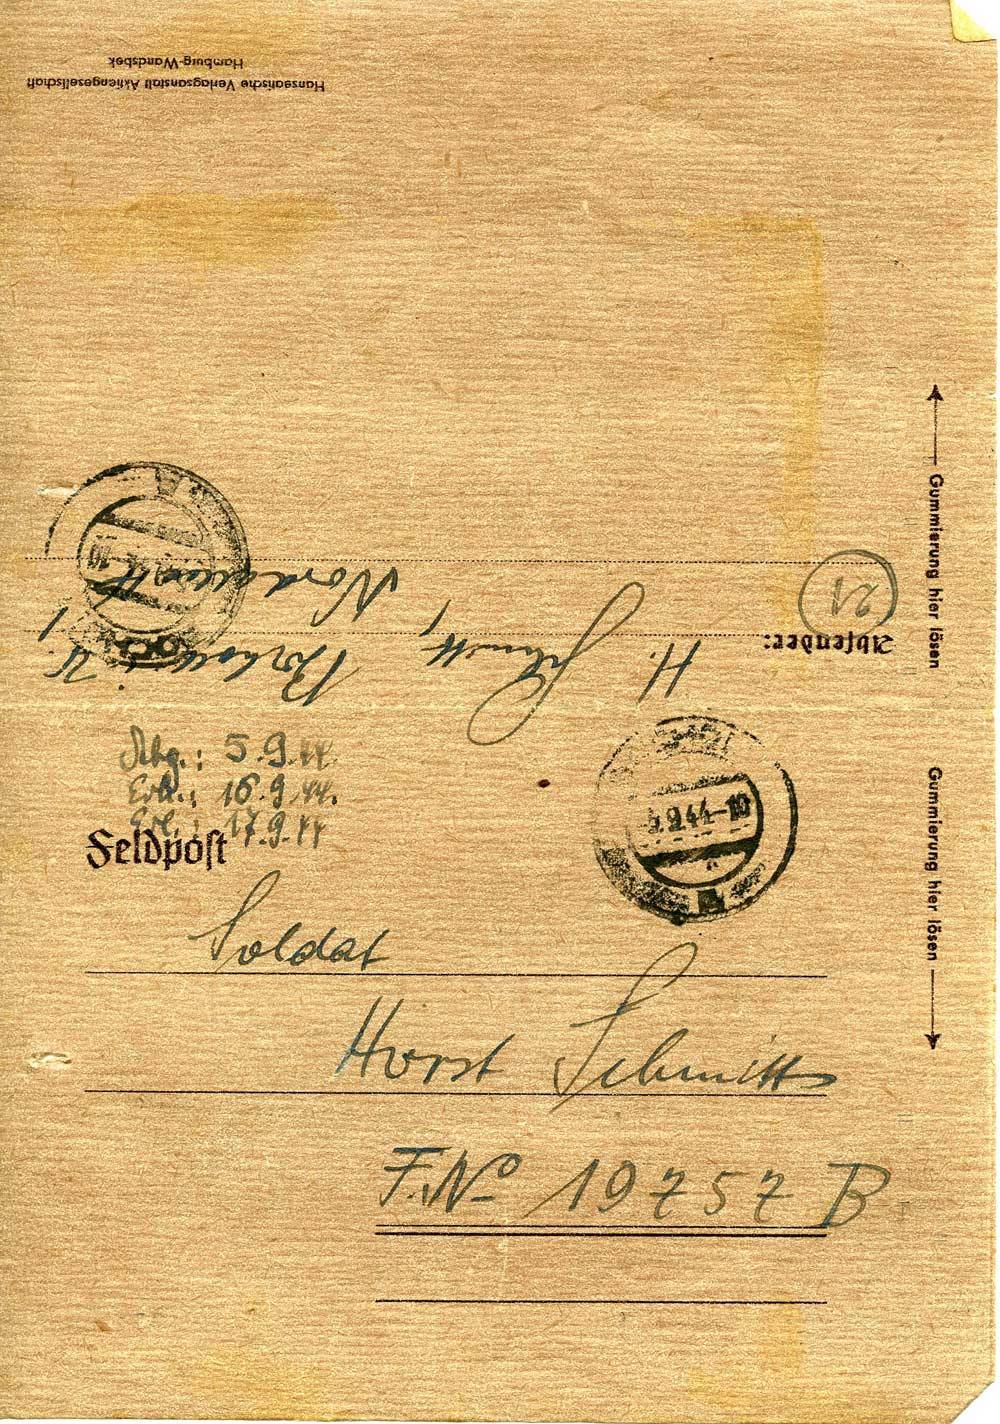 Hanseatische Verlagsanstalt Aktiengesellschaft
Hamburg-Wandsbek
Absender:
H. Schmitt, Borken i. W.
21
Gummierung hier lösen
Gummierung hier lösen
Abg.: 5.9.44.
Erh.: 16.9.44.
Erl.: 17.9.44
Feldpost
5.9.44-10
A
Soldat
Horst Schmitts
F.Nº 19757 B